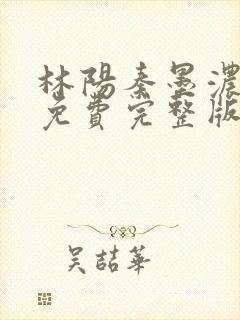 林陽秦墨濃
免費完整版
吴喆華